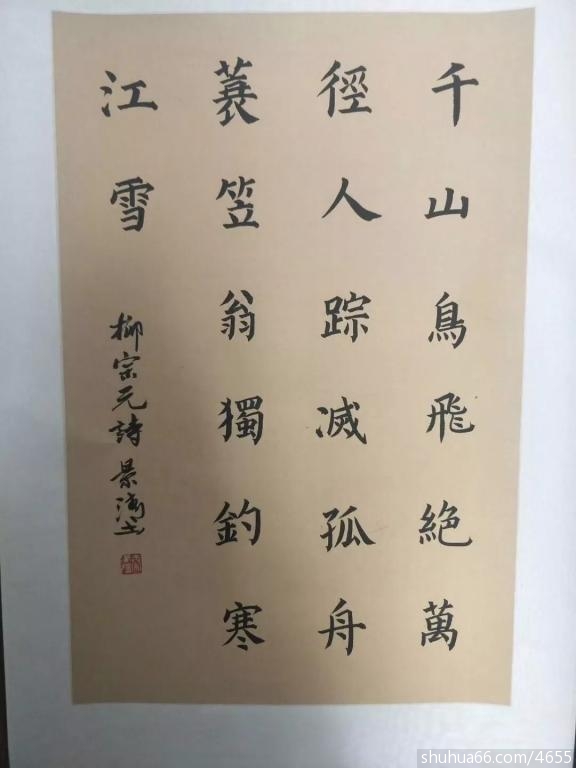 千山鳥飛絶萬
徑人踪滅孤舟
蓑笠翁獨釣寒
江雪
柳宗元詩 景濤书
shuhua66.com/4655